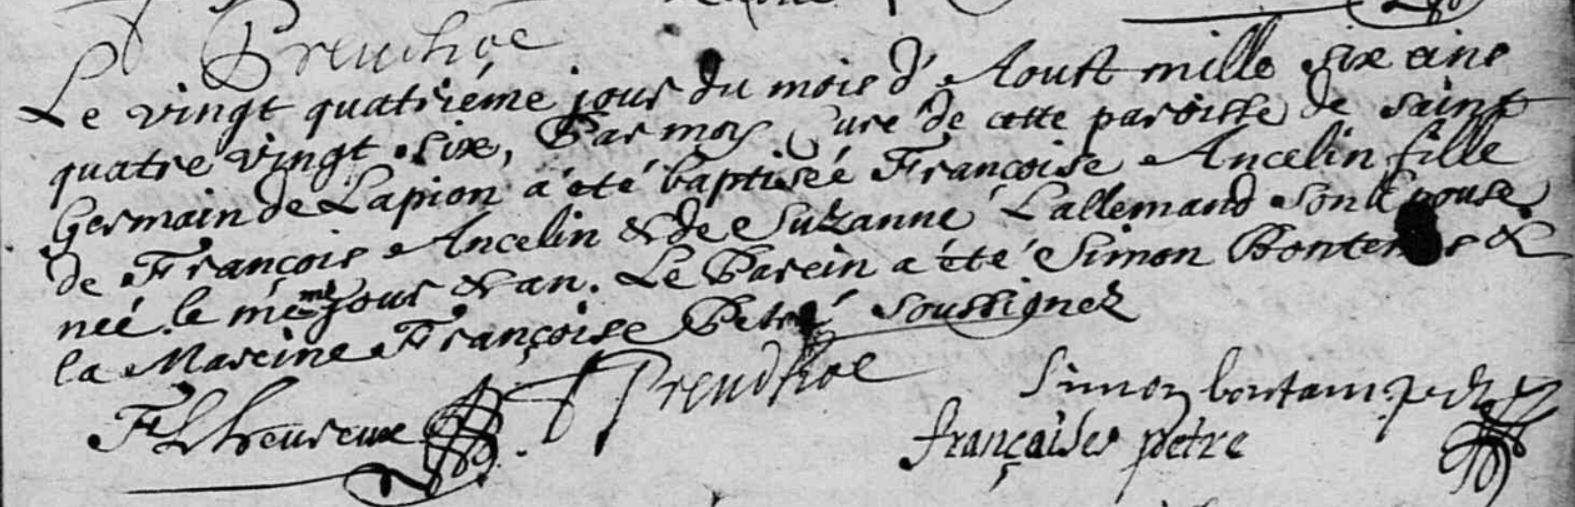 Preudhoe
Le vingt quatriéme jour du mois d'Aoust mille six cens
quatre vingt six, Par moy Curé de cette paroisse de saint
Germain de Lapion a été baptiséé Françoise Ancelin fille
de François Ancelin & de Suzanne Lallemand son Epouse,
neé le méme jour & an. Le Parein a été Simon Bontems &
la Mareine Françoise Petré soussignez
Preudhoe Simon bontams
F Lheureux françaises petre